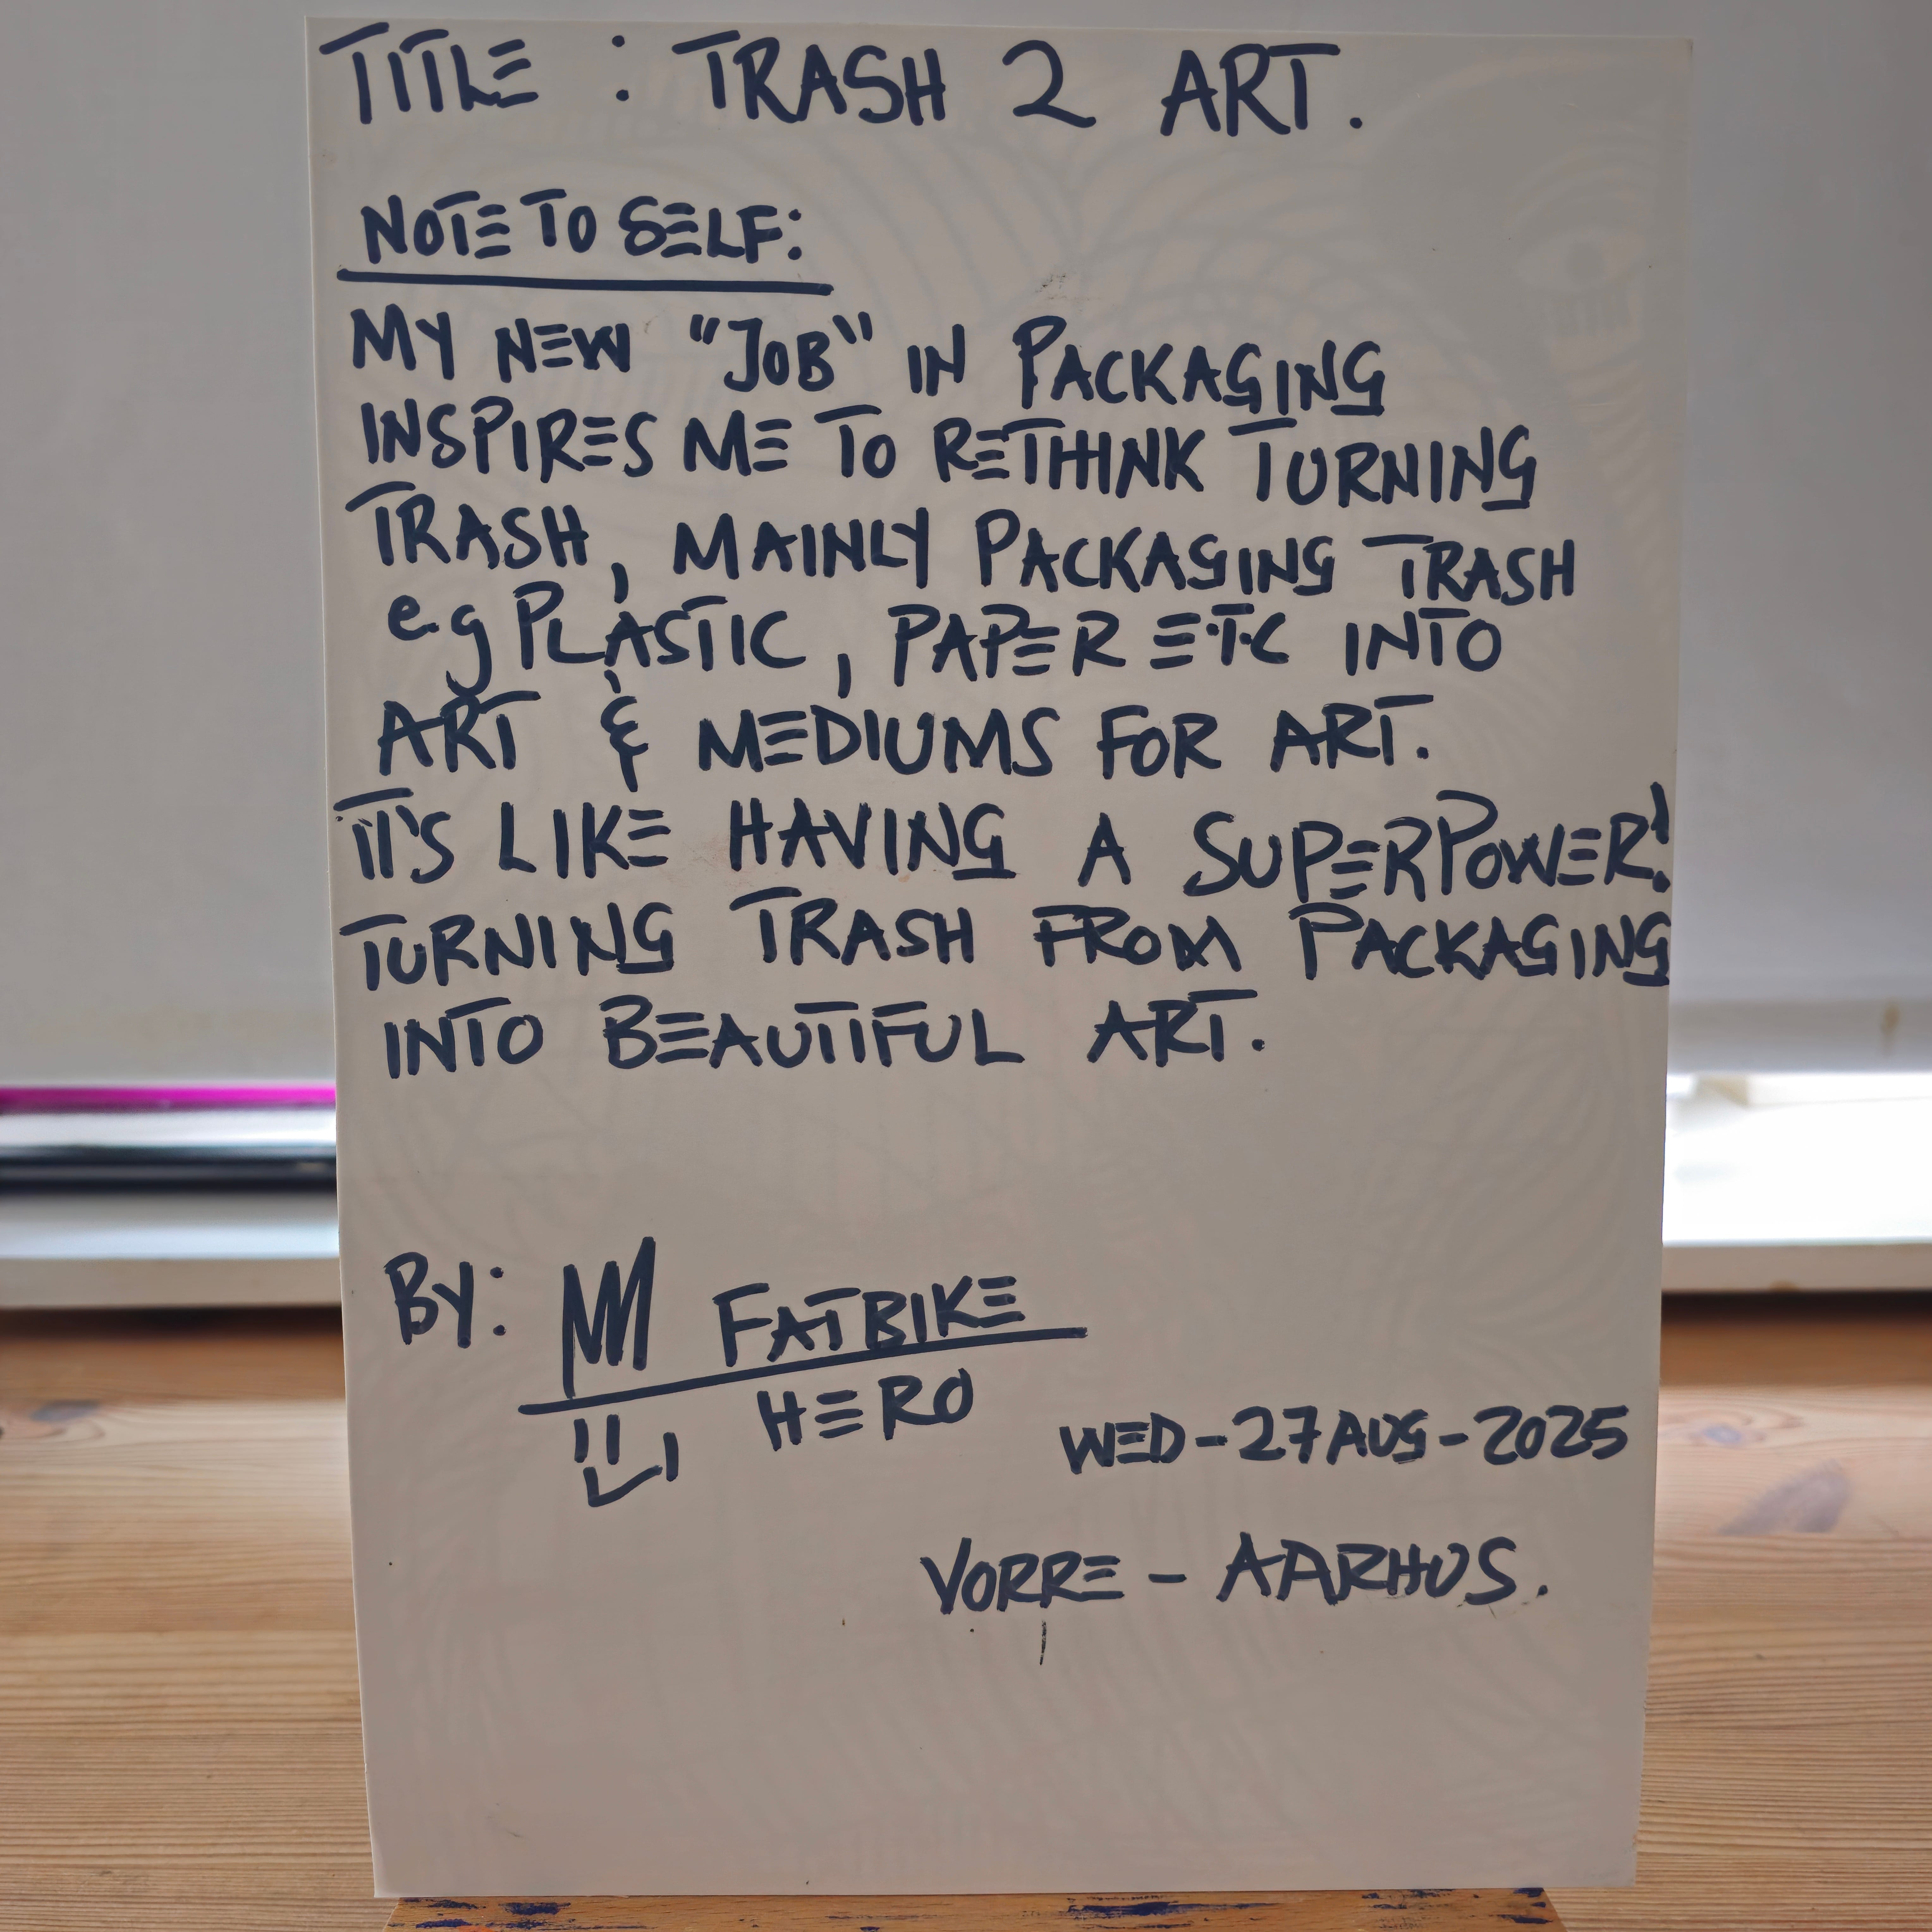 TITLE : TRASH 2 ART.
NOTE TO SELF:
MY NEW "JOB" IN PACKAGING
INSPIRES ME TO RETHINK TURNING
TRASH, MAINLY PACKAGING TRASH
e.g PLASTIC, PAPER E.T.C INTO
ART & MEDIUMS FOR ART.
IT'S LIKE HAVING A SUPERPOWER!
TURNING TRASH FROM PACKAGING
INTO BEAUTIFUL ART.
BY: FATBIKE
HERO
WED-27AUG-2025
VORRE - AARHUS.